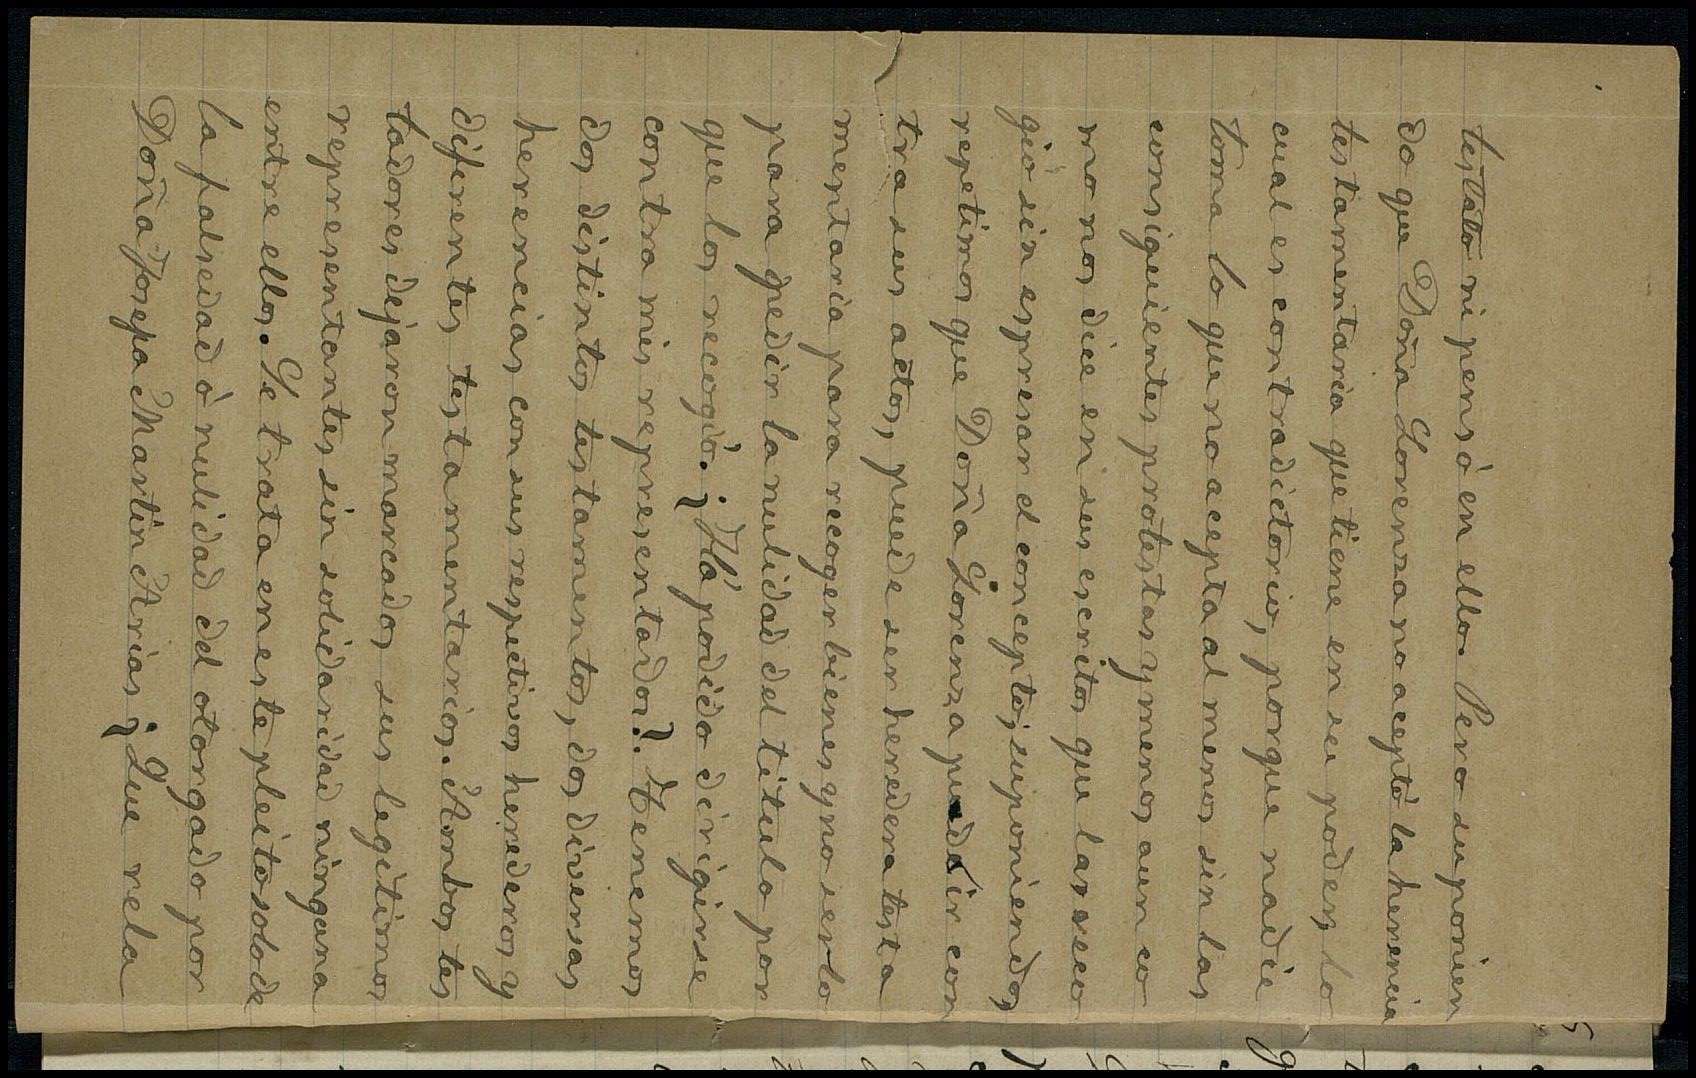 testato ni pensó en ello. Pero suponien
do que Doña Lorenza no aceptó la herencia
testamentaria que tiene en su poder, lo
cual es contradictorio, porque nadie
toma lo que no acepta al menos sin las
consiguientes protestas y menos aun co
mo nos dice en sus escritos que las reco
gió sin espresar el concepto; suponiendo,
repetimos que Doña Lorenza puede ir con
tra sus actos, puede ser heredera testa
mentaria para recoger bienes y no serlo
para pedir la nulidad del titulo por
que los recogió. ¿Ha podido dirigirse
contra mis representados? Tenemos
dos distintos testamentos, dos diversas
herencias con sus respectivos herederos y
diferentes testamentarios. Ambos tes
tadores dejaron marcados sus legitimos
representantes sin solidaridad ninguna
entre ellos. Se trata en este pleito solo de
la falsedad ó nulidad del otorgado por
Doña Josepa Martin Arias; ¿Que rela